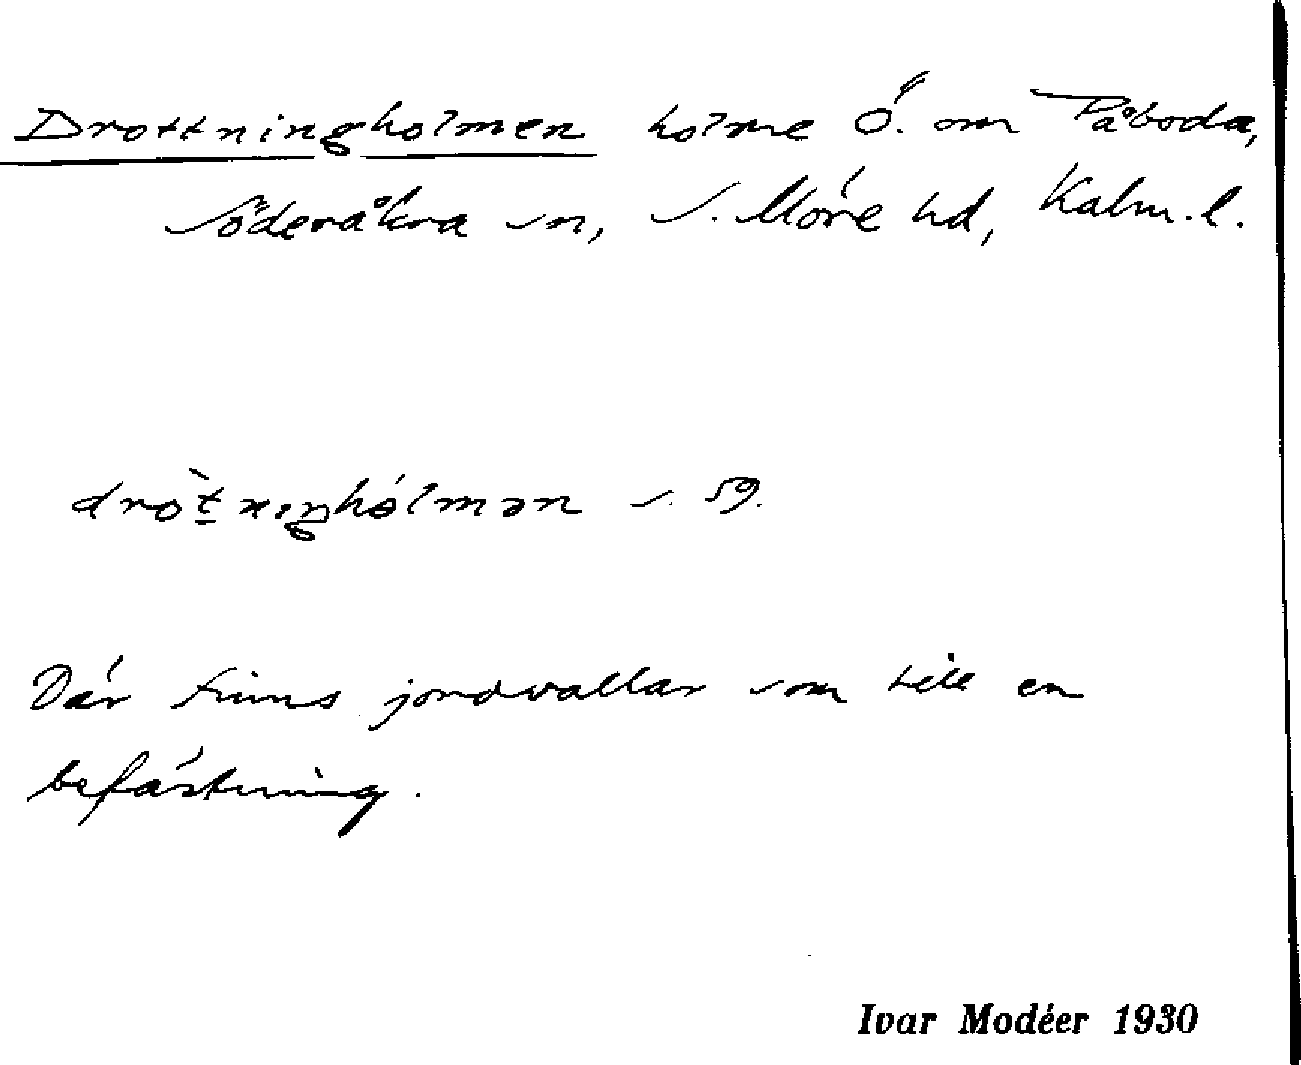 Drottningholmen holme Ö. om Påboda,
Söderåkra sn, S. Möre hd, Kalm. l.
dròt̲nıŋhólmən s. 59.
Där finns jordvallar som till en
befästning.
Ivar Modéer 1930